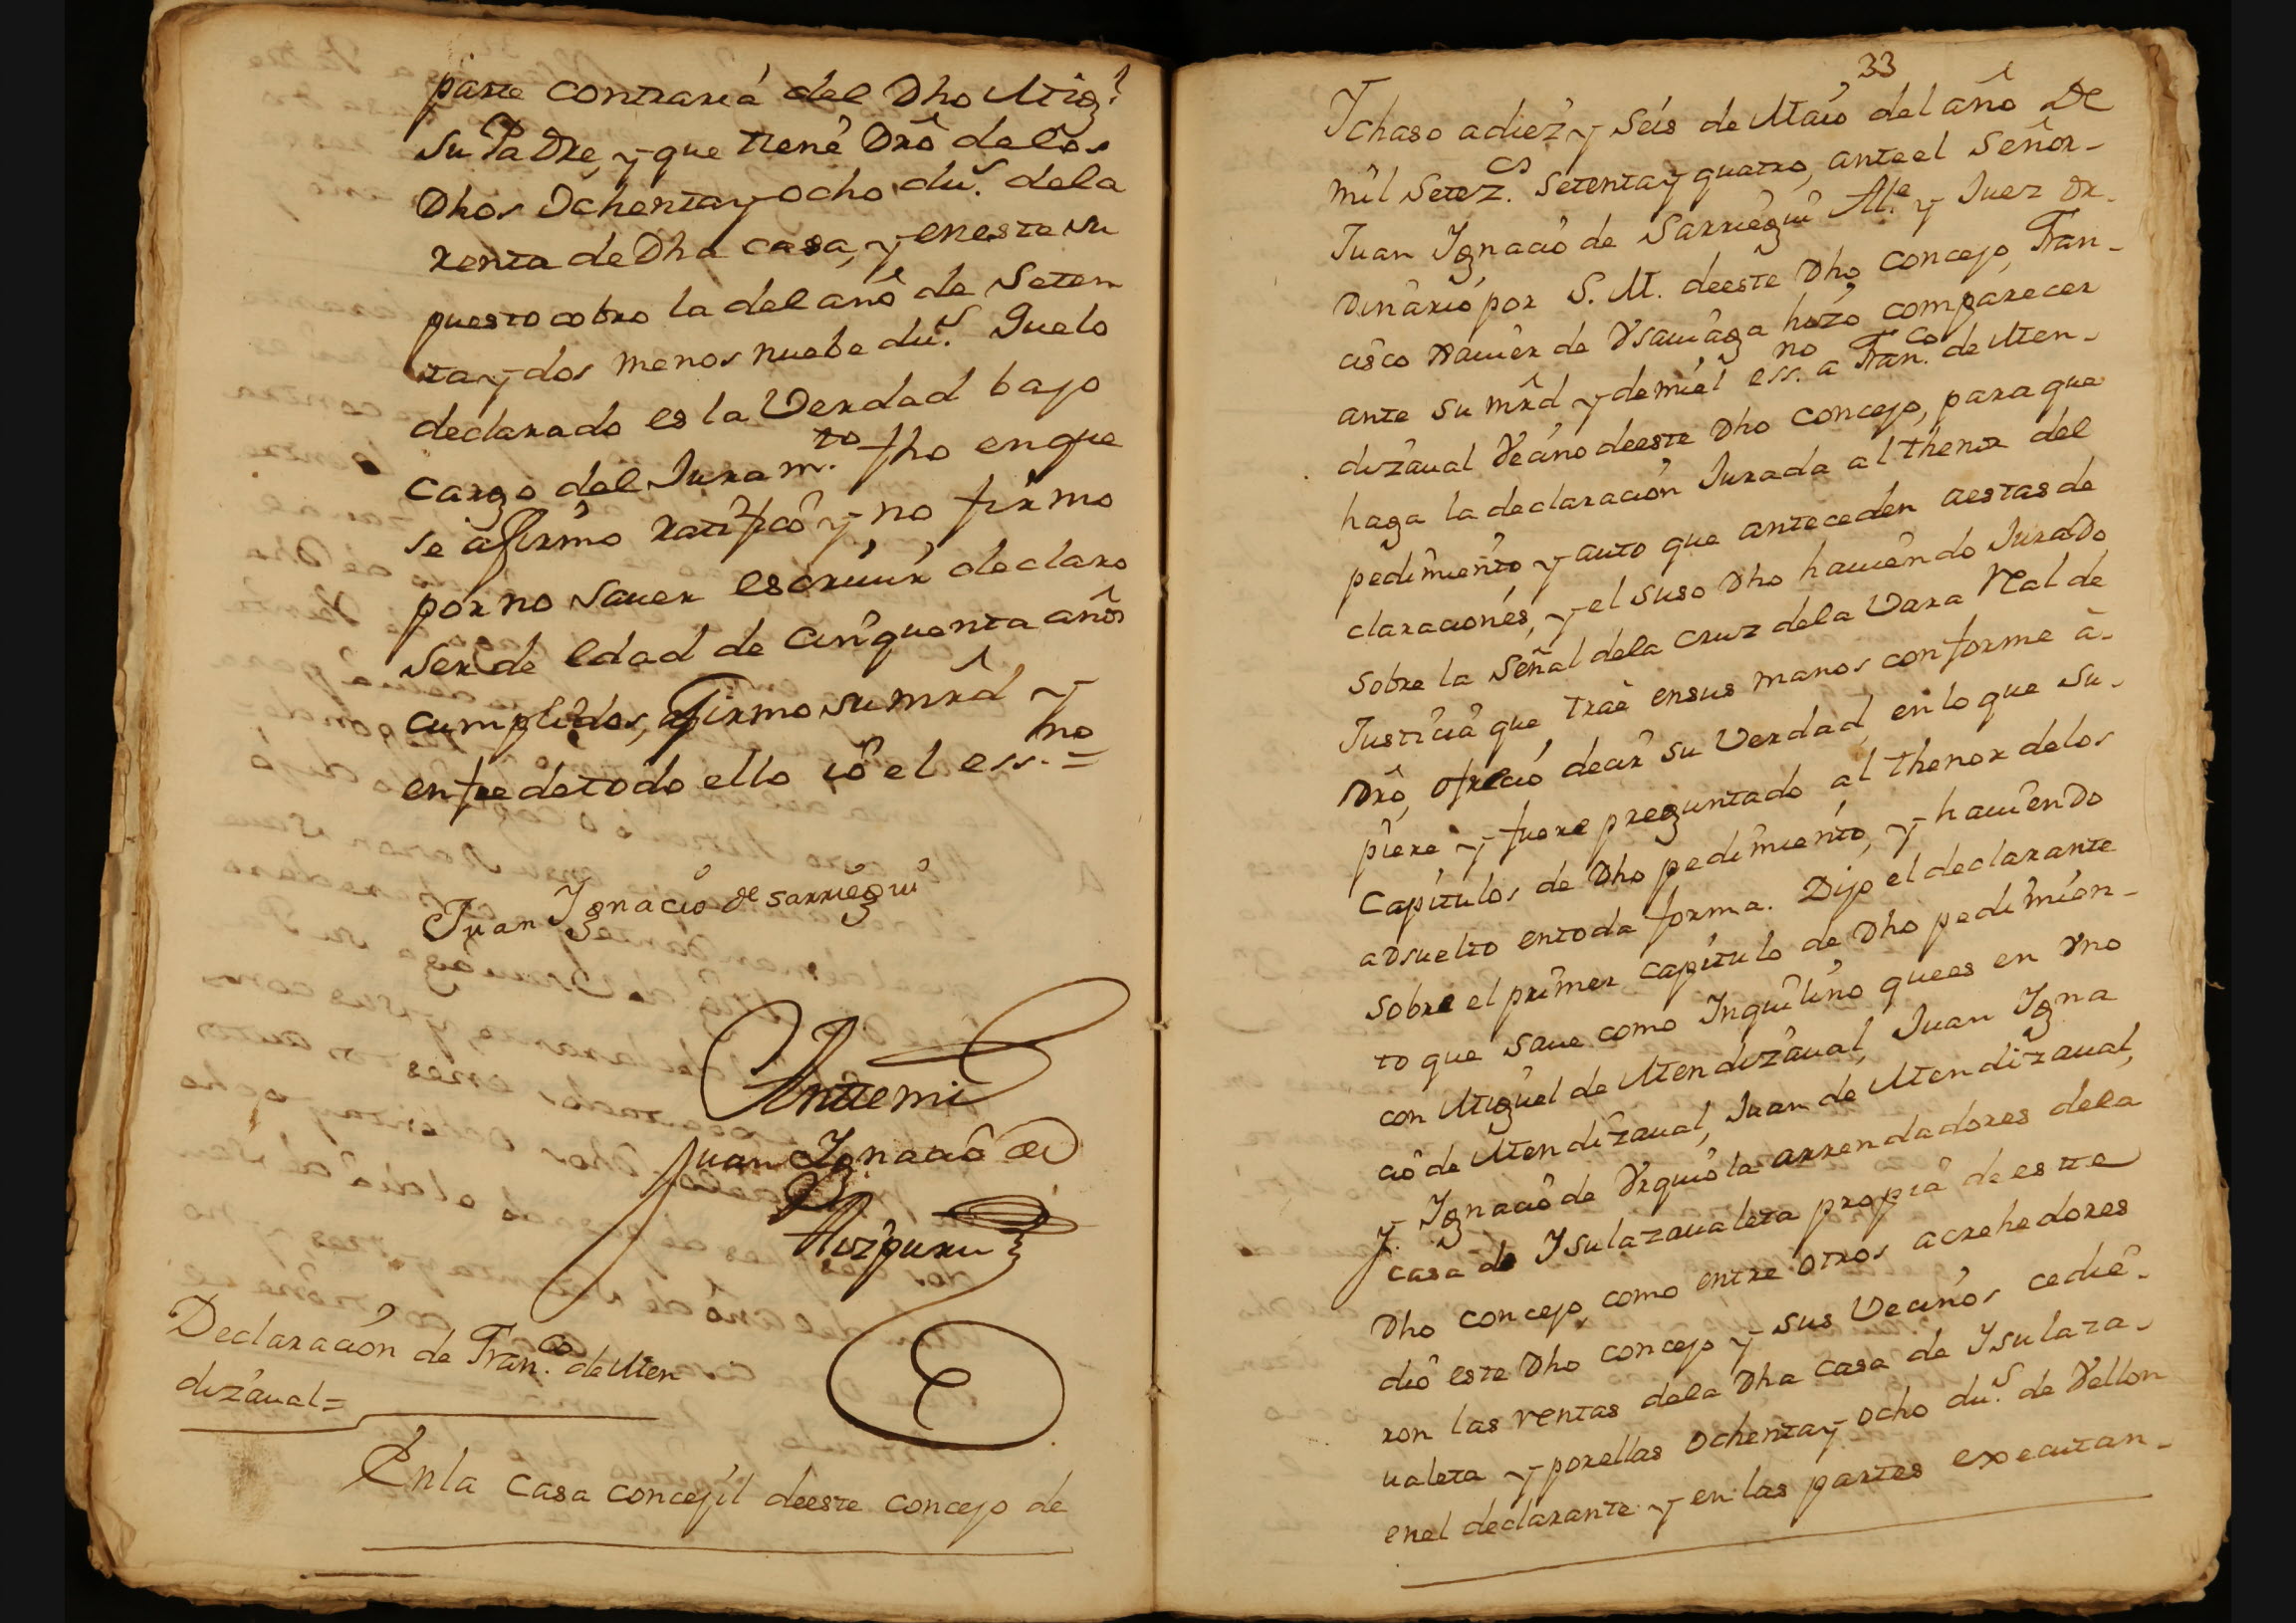 parte contraria del Dho Mig.l
su Padre, y que tiene Dro delos
Dhos Ochentay ocho du.s dela
renta de Dha casa, y eneste su
puesto cobro la del año de Seten
tay dos menos nuebe du.s Quelo
declarado es la Verdad bajo
cargo del Juram.to fho enque
se afirmo ratificó y no firmo
por no saver escriuir declaro
ser de edad de cinquenta años
cumplidos, firmo su mrd y
enfee detodo ello io el ess.no =
Juan Ignacio de Sarriegui
Antemi
Juan Ignacio de
Aizpuru
Declaración de Fran.co de Men
dizaual =
Enla Casa concejil deeste concejo de
33
Ychaso adiez y seis de Maio del año De
mil Setez.cs setentay quatro, anteel Señor
Juan Ignacio de Sarriegui Al.e y Juez Or-
Dinario por S. M. deeste Dho concejo, Fran-
cisco Xauier de Vsauiaga hizo comparecer
ante su mrd y demiel ess.no a Fran.co de Men-
dizaual Vecino deeste Dho concejo, para que
haga la declaración Jurada al thenor del
pedimiento y auto que anteceden aestas de
claraciones, y el suso Dho hauiendo Jurado
sobre la Señal dela cruz dela Vara Real de
Justicia que trae ensus manos conforme a-
Dro, ofrecio decir su Verdad, en lo que su-
piere y fuere preguntado al thenor delos
Capitulos de Dho pedimiento, y hauiendo
absuelto entoda forma. Dijo el declarante
sobre el primer capitulo de Dho pedimien-
to que saue como Inquilino quees en Vno
con Miguel de Mendizaual, Juan Igna
cio de Mendizaual, Juan de Mendizaual,
y Ignacio de Vrquiola arrendadores dela
casa de Ysulazaualeta propia de este
Dho concejo, como entre otros acrehedores
dió este Dho concejo y sus Vecinos cedie-
ron las rentas dela Dha casa de Ysulaza-
ualeta y porellas ochentay ocho du.s de Vellon
enel declarante y en las partes executan-